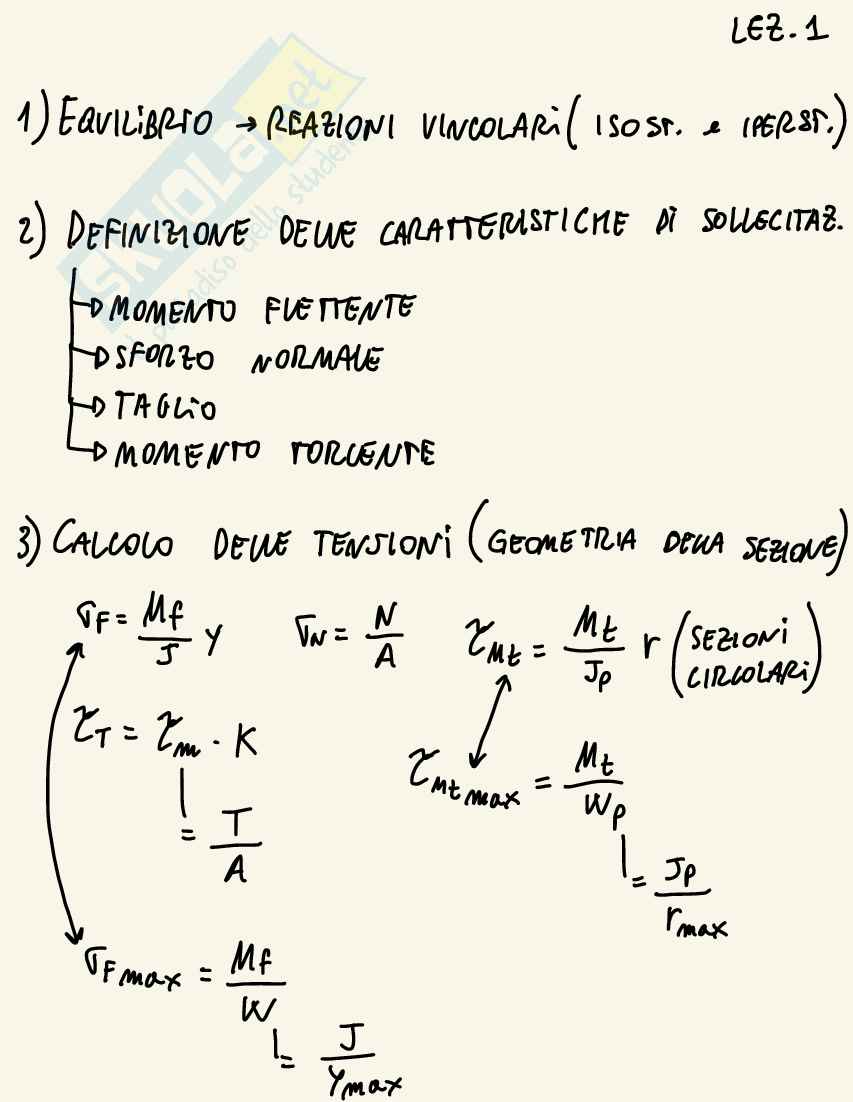 LEZ. 1
1) EQUILIBRIO → REAZIONI VINCOLARI (ISOST. e IPERST.)
2) DEFINIZIONE DELLE CARATTERISTICHE DI SOLLECITAZ.
→ MOMENTO FLETTENTE
→ SFORZO NORMALE
→ TAGLIO
→ MOMENTO TORCENTE
3) CALCOLO DELLE TENSIONI (GEOMETRIA DELLA SEZIONE)
σF = Mf/J y   σN = N/A   τMt = Mt/Jp r (SEZIONI CIRCOLARI)
τT = τm · K
= T/A
τMt max = Mt/Wp
= Jp/rmax
σF max = Mf/W
= J/ymax
SKUOLA.net